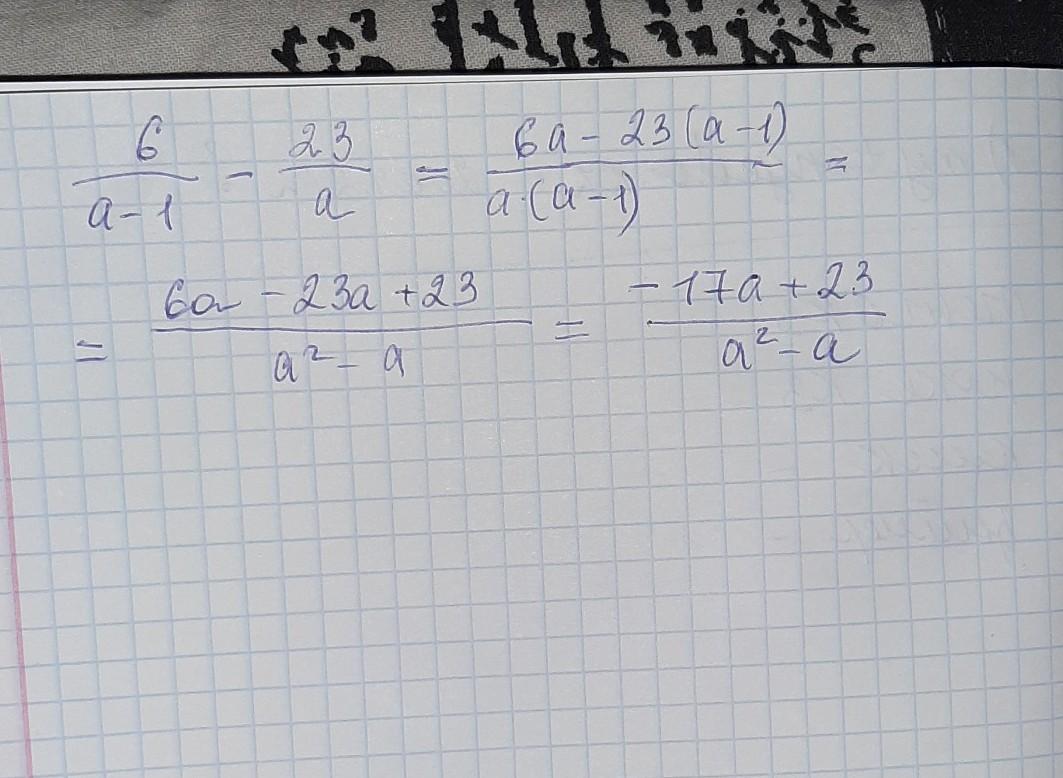 6/(a-1) - 23/a = (6a - 23(a-1))/(a·(a-1)) =
= (6a - 23a + 23)/(a² - a) = (-17a + 23)/(a² - a)